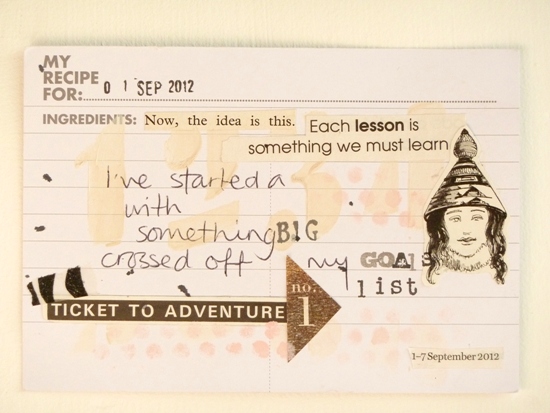 MY
RECIPE
FOR: 0 1 SEP 2012
INGREDIENTS: Now, the idea is this.
Each lesson is
something we must learn
I've started a
with
something BIG
crossed off my GOALS
list
TICKET TO ADVENTURE
no.
1
1-7 September 2012